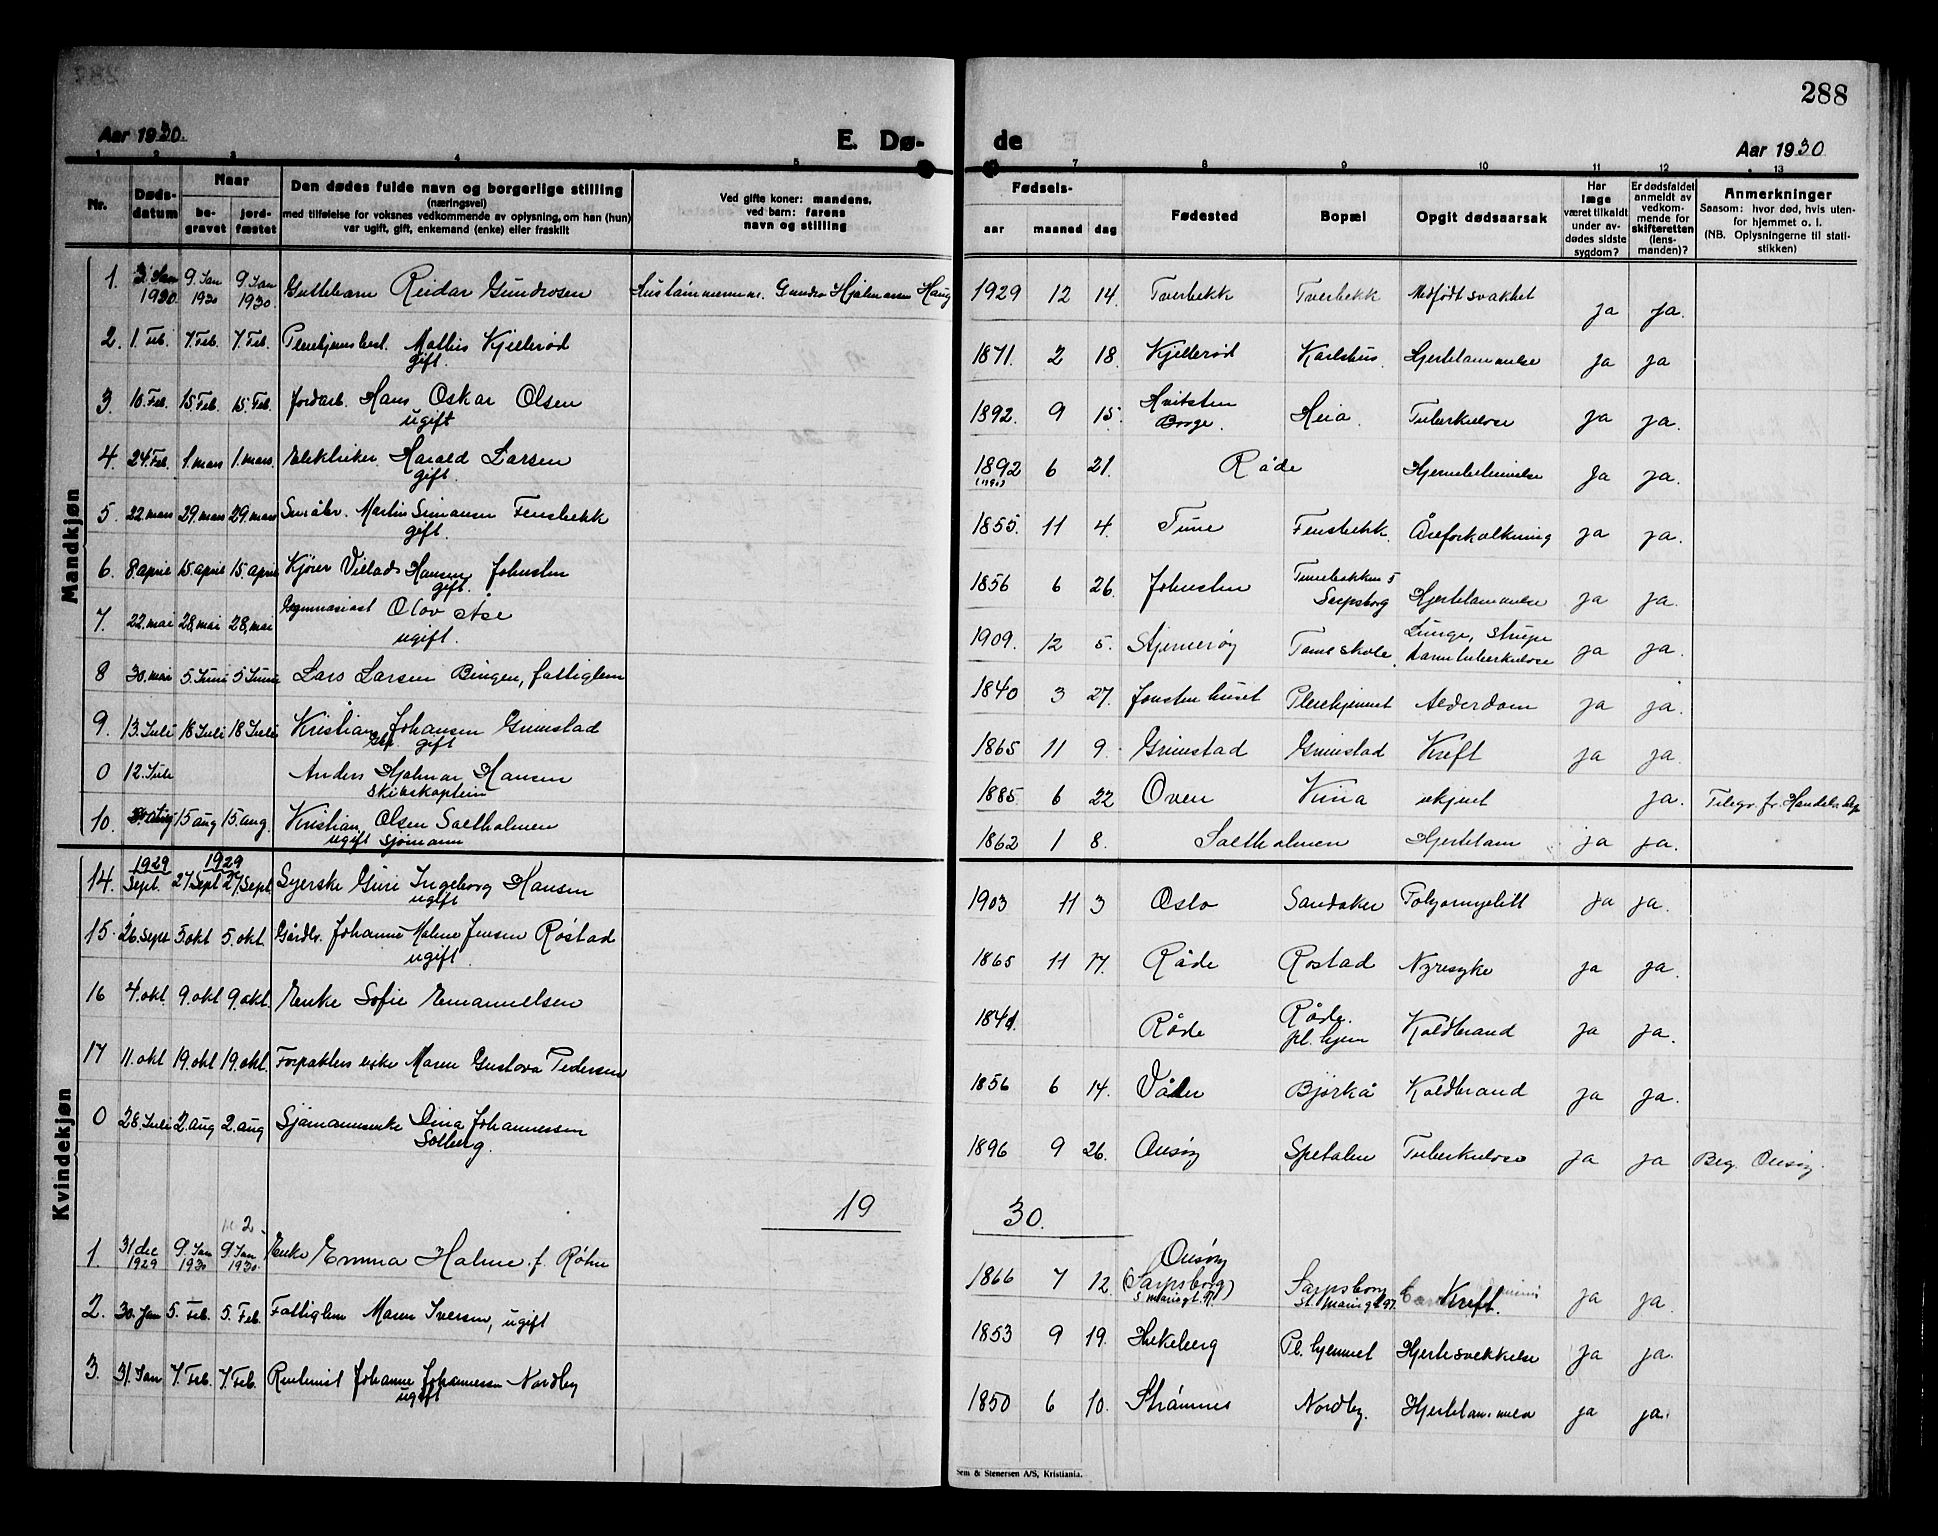 288
Aar 1930.
E. Dø-
de
Aar 1930
1 2 3 4 5
7 8 9 10 11 12 13
Nr.
Døds-
datum
Naar
be-
gravet
jord-
fæstet
Den dødes fulde navn og borgerlige stilling
(næringsvei)
med tilføielse for voksnes vedkommende av oplysning, om han (hun)
var ugift, gift, enkemand (enke) eller fraskilt
Ved gifte koner: mandens,
ved barn: farens
navn og stilling
Fødsels-
aar
maaned
dag
Fødested
Bopæl
Opgit dødsaarsak
Har
læge
været tilkaldt
under av-
dødes sidste
sygdom?
Er dødsfaldet
anmeldt av
vedkom-
mende for
skifteretten
(lens-
manden)?
Anmerkninger
Saasom: hvor død, hvis uten-
for hjemmet o. l.
(NB. Oplysningerne til stati-
stikken)
Mandkjøn
1. 3 Jan 1930. 9 Jan 1930 9 Jan 1930. Guttebarn Reidar Gundrosen Gundro Hjalmarsen Haug 1929 12 14. Tverbekk Tverbekk Medfødt svakhet ja ja.
2. 1. Feb. 7. Feb. 7. Feb. Pleiehjemsbest. Mathis Kjellerød
gift. 1871. 2 18. Kjellerød Karlshus. Hjertelammelse ja ja
3. 10. Feb. 15. Feb. 15. Feb. Jordarb. Hans Oskar Olsen
ugift 1892. 9 15. Hvitsten
Borge. Heia. Tuberkulose ja ja.
4. 24. Feb. 1. mars 1. mars Elektriker Harald Larsen
gift. 1892 6 21. Råde Hjernebetennelse ja ja.
5. 22 mars 29. mars 29. mars Småbr. Martin Simonsen Fensbekk
gift. 1855. 11 4. Tune Fensbekk. Åreforkalkning ja ja.
6. 8. april 15. april 15. april Kjører Villads Hansen Johnsten
gift. 1856 6 26. Johnsten Tunebakken 5
Sarpsborg Hjertelammelse ja ja.
7. 22. mai 28. mai 28. mai Gymnasiast Olov Åse
ugift. 1909. 12 5. Stjernerøy Tomb skole. Lunge, strupe
tarmtuberkulose ja ja.
8 30. mai 5 Juni 5 Juni Lars Larsen Bingen, fattiglem 1840 3 27. Jonstenhuset Pleiehjemmet Alderdom ja ja.
9. 13. Juli 18 Juli 18 Juli Kristian Johansen Grimstad
gift 1865 11 9. Grimstad Grimstad Kreft ja ja.
0 12. Juli Anders Hjalmar Hansen
Skibskaptein 1885 6 22 Oven Kina ukjent ja. Telegr. fr. Handels dep
10. Aug 15 aug 15. aug. Kristian Olsen Saltholmen
ugift sjømann 1862 1 8. Saltholmen Hjertelam ja ja.
Kvindekjøn
1929 1929
14. Sept. 27 Sept 27. Sept. Syerske Guri Ingeborg Hansen
ugift 1903 11 3 Oslo Sandaker Poliomyelitt ja ja.
15. 26. Sept 5. okt 5. okt. Gårdbr. Johanne Malene Jensen Rostad
ugift. 1865 11 17. Råde Rostad Nyresyke ja ja.
16 4. okt 9. okt 9. okt. Enke Sofie Emanuelsen 1841. Råde Råde
pl. hjem Koldbrand ja ja.
17 11. okt 19. okt 19. okt. Forpakters enke Maren Gustava Pedersen 1856 6 14. Våler Bjørkå Koldbrand ja ja.
0 28. Juli 2. Aug 2. aug Sjømannsenke Dina Johannessen
Solberg. 1896 9 26. Onsøy Spetalen Tuberkulose ja ja Beg. Onsøy.
19 30.
1. 31 dec 1929 9. Jan 1930 9. Jan 1930. Enke Emma Halme f. Røhne 1866 7 12 Onsøy
(Sarpsborg)
St. Mariegt. 97. Sarpsborg
St. Mariegt 97. Kreft. ja ja.
2. 30. Jan 5. Feb. 5. Feb. Fattiglem Maren Iversen, ugift 1853 9 19. Hukeberg Pl. hjemmet Hjertesvekkelse ja ja.
3. 31. Jan 7. Feb. 7. Feb. Rentenist Johanne Johannessen Nordby
ugift 1850 6 10. Strømnes Nordby. Hjertelammelse ja ja.
Sem & Stenersen A/S, Kristiania.